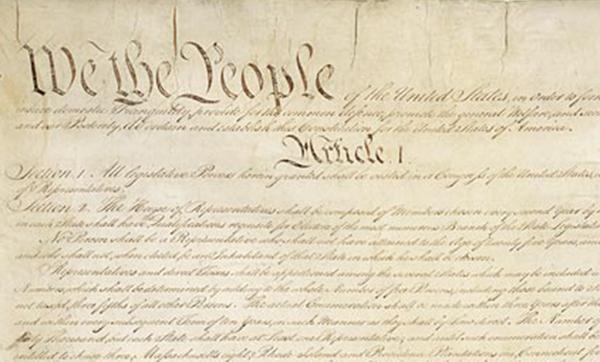 We the People of the United States, in Order to form
insure domestic Tranquility, provide for the common defence, promote the general Welfare, and secu
and our Posterity, do ordain and establish this Constitution for the United States of America.
Article. I.
Section. 1. All legislative Powers herein granted shall be vested in a Congress of the United States,
of Representatives.
Section. 2. The House of Representatives shall be composed of Members chosen every second Year by
in each State shall have Qualifications requisite for Electors of the most numerous Branch of the State Legislatur
No Person shall be a Representative who shall not have attained to the Age of twenty five Years, and
and who shall not, when elected, be an Inhabitant of that State in which he shall be chosen.
Representatives and direct Taxes shall be apportioned among the several States which may be included
Numbers, which shall be determined by adding to the whole Number of free Persons, including those bound to
not taxed, three fifths of all other Persons. The actual Enumeration shall be made within three Years after the
and within every subsequent Term of ten Years, in such Manner as they shall by Law direct. The Number of
thirty Thousand, but each State shall have at Least one Representative; and until such enumeration shall
entitled to chuse three, Massachusetts eight, Rhode Island and Providence Plantations